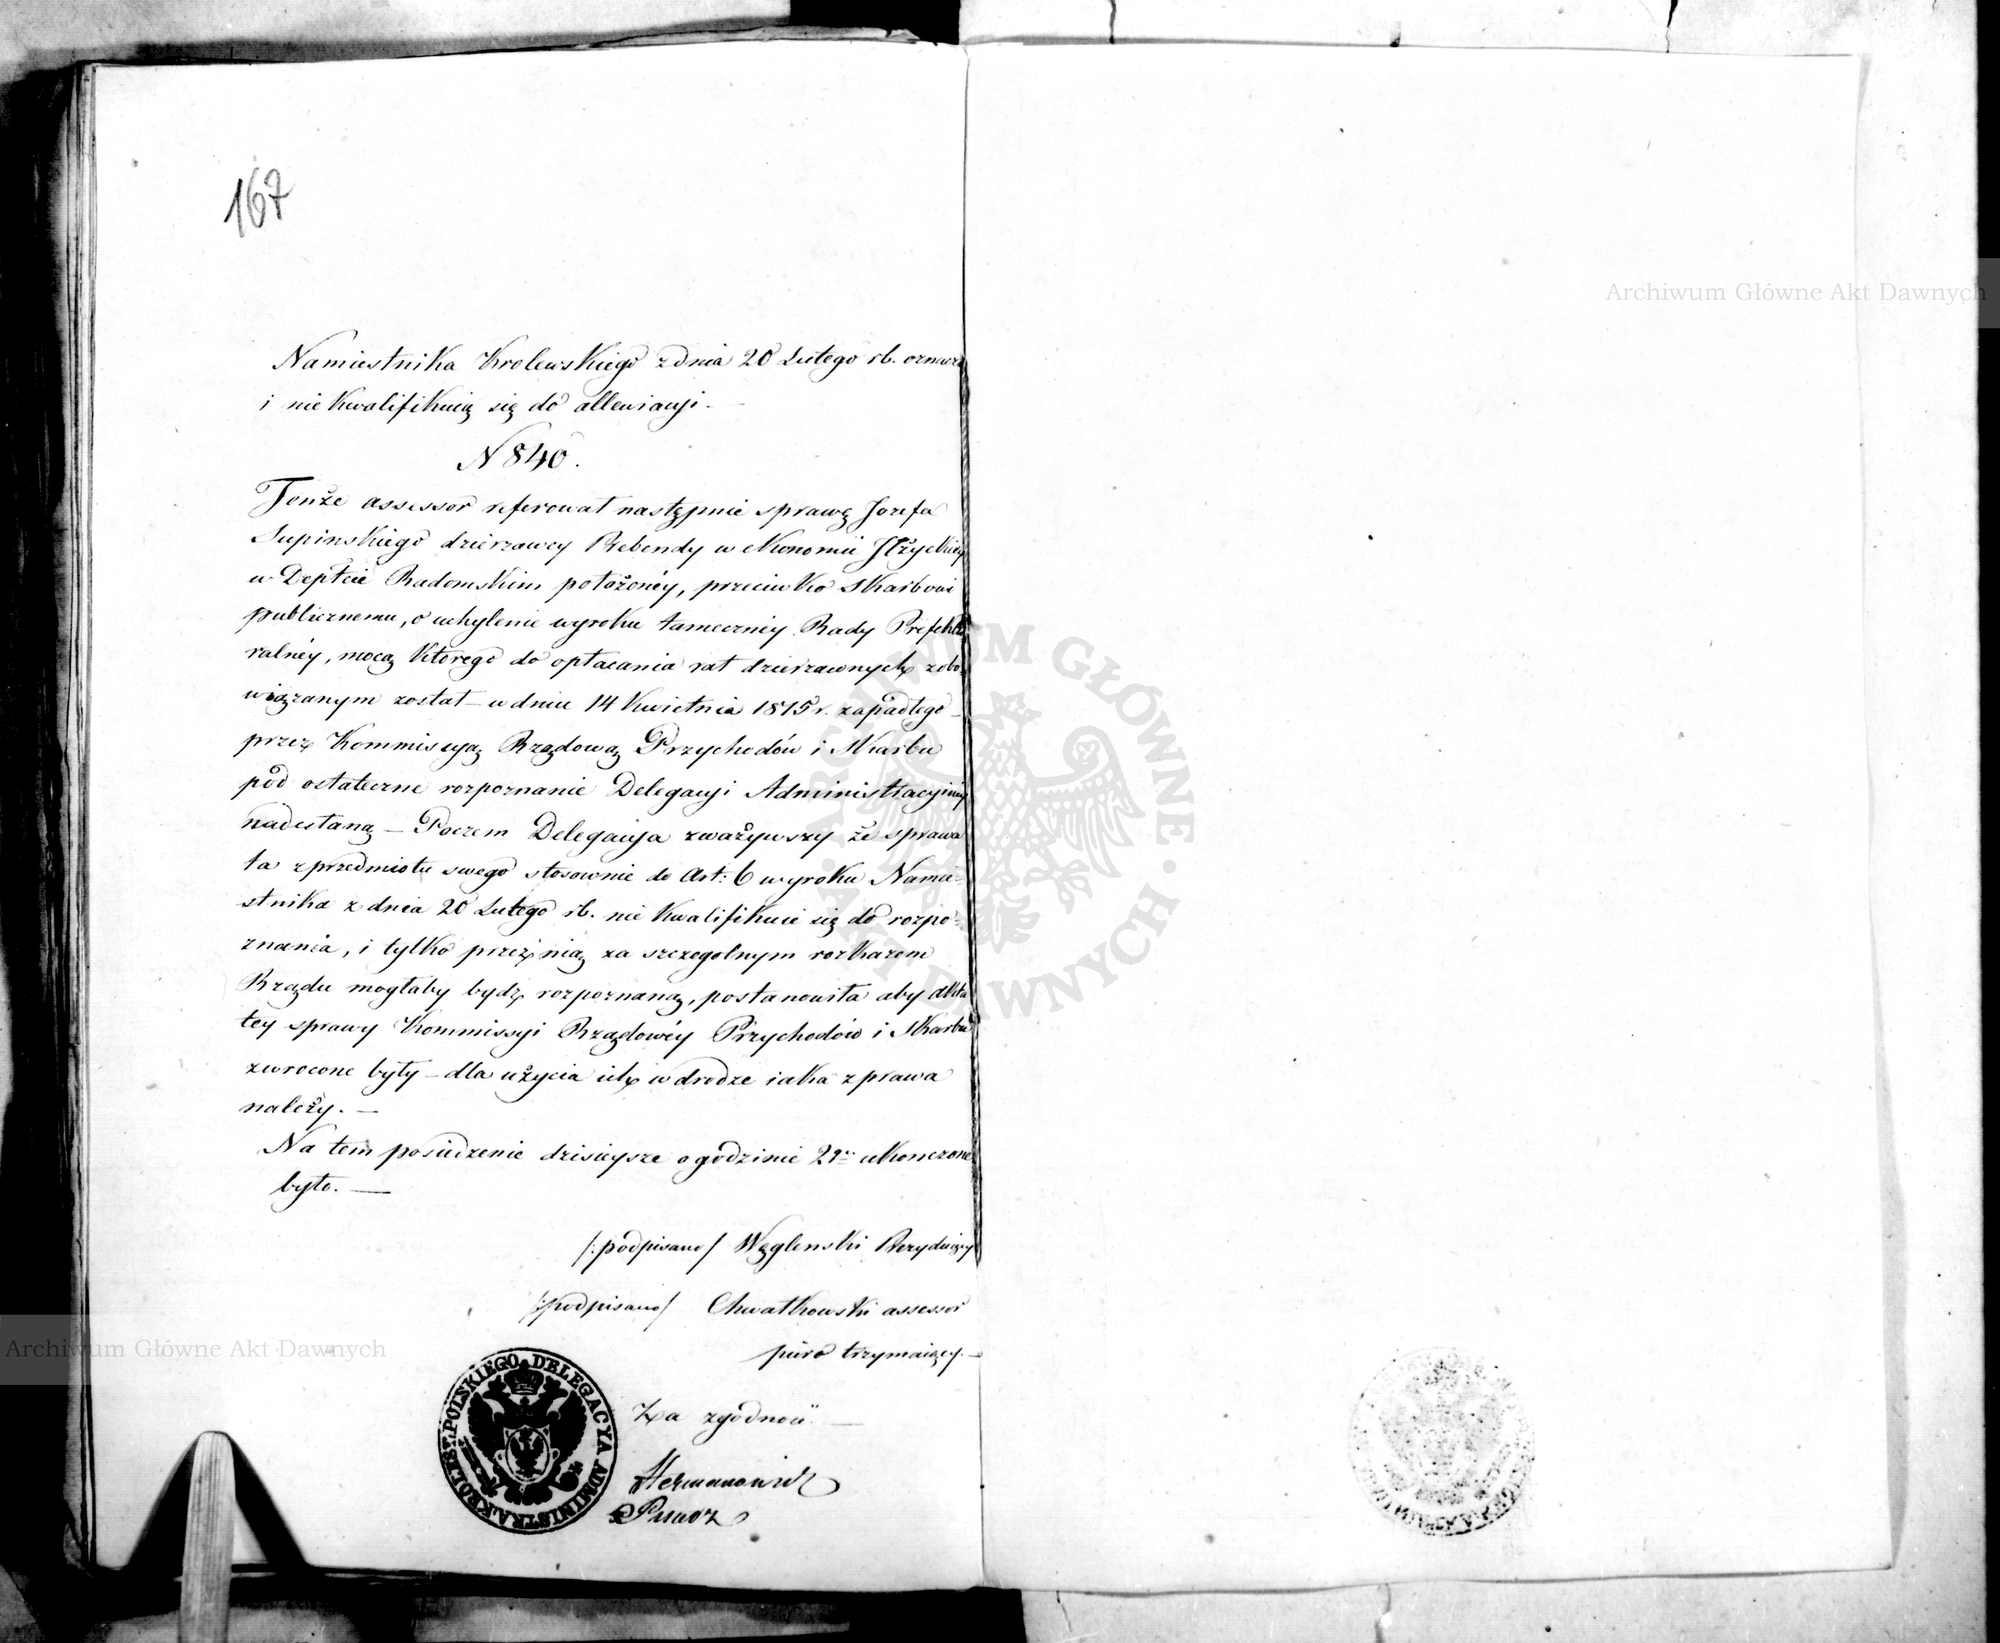 167
Namiestnika Krolewskiego z dnia 20 Lutego rb.
i nie kwalifikuią się do allewiacyi.
N 840.
Tenże assessor referował następnie sprawę Jozefa
Lupinskiego dzierzawcy Prebendy w ekonomii
w Depttcie Radomskim położonéy, przeciwko Skarbowi
publicznemu, o uchylenie wyroku tameczniey Rady Prefektu
ralnéy, mocą ktorego do opłacania rat dzierzawnych zobo
wiązanym został – w dniu 14 Kwietnia 1815 r. zapadłego –
przez Kommissyą Rządową Przychodów i Skarbu
pod ostateczne rozpoznanie Delegacyi Administracyiney
nadesłaną – Poczem Delegacyja zważywszy że sprawa
ta z przedmiotu swego stosownie do Art: 6 wyroku Namie-
stnika z dnia 20 Lutego rb. nie kwalifikuie się do rozpo-
znania, i tylko przez nią za szczegolnym rozkazem
Rządu mogłaby bydź rozpoznaną, postanowiła aby akta
tey sprawy Kommissyi Rządowéy Przychodów i Skarbu
zwrocone były – dla użycia ich w drodze iaka z prawa
należy. –
Na tem posiedzenie dzisieysze o godzinie ukonczone
było. –
/:podpisano/ Węglenski Prezyduiący
/:podpisano/ Chwatkowski assessor
pióro trzymaiący. –
Za zgodność –
Hermanowicz
Pisarz
KROLEST: POLSKIEGO DELEGACYA ADMINISTRA.
Archiwum Główne Akt Dawnych
Archiwum Główne Akt Dawnych
ARCHIWUM GŁÓWNE · AKT DAWNYCH ·